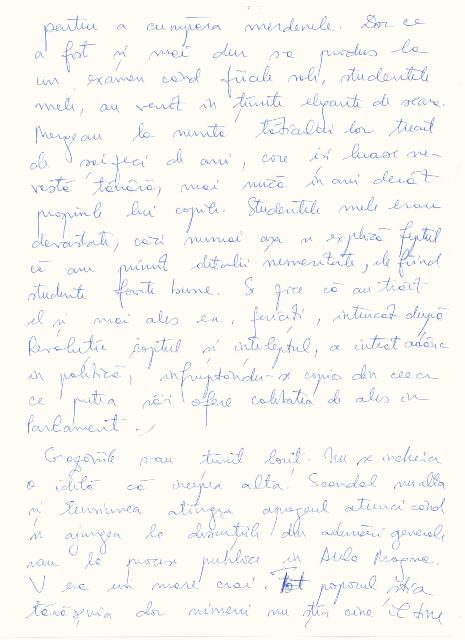 pentru a cumpăra merdenele. Dar ce
a fost și mai dur s-a produs la
un examen când fiicele sale, studentele
mele, au venit în ținute elegante de seară.
Mergeau la nunta tatălui lor trecut
de șaizeci de ani, care își luase ne-
vastă tânără, mai mică în ani decât
propriile lui copile. Studentele mele erau
devastate, căci numai așa se explică faptul
că au primit detalii nemeritate, ele fiind
studente foarte bune. Se zice că au trăit
el și mai ales ea, fericiți, întrucât după
Revoluție isprăvitul și înțeleptul, a intrat adânc
în politică, înfruptându-se copios din ceea
ce putea să-i ofere calitatea de ales în
Parlament.
tunul lovit. Nu se încheia
o idilă că începea alta. Scandal nu alta
și tensiunea atingea apogeul atunci când
se ajungea la discuțiile din adunări generale
sau la procese publice în Aula Magna.
V era un mare crai. Tot poporul știa
tărășenia dar nimeni nu știa cine îl ține